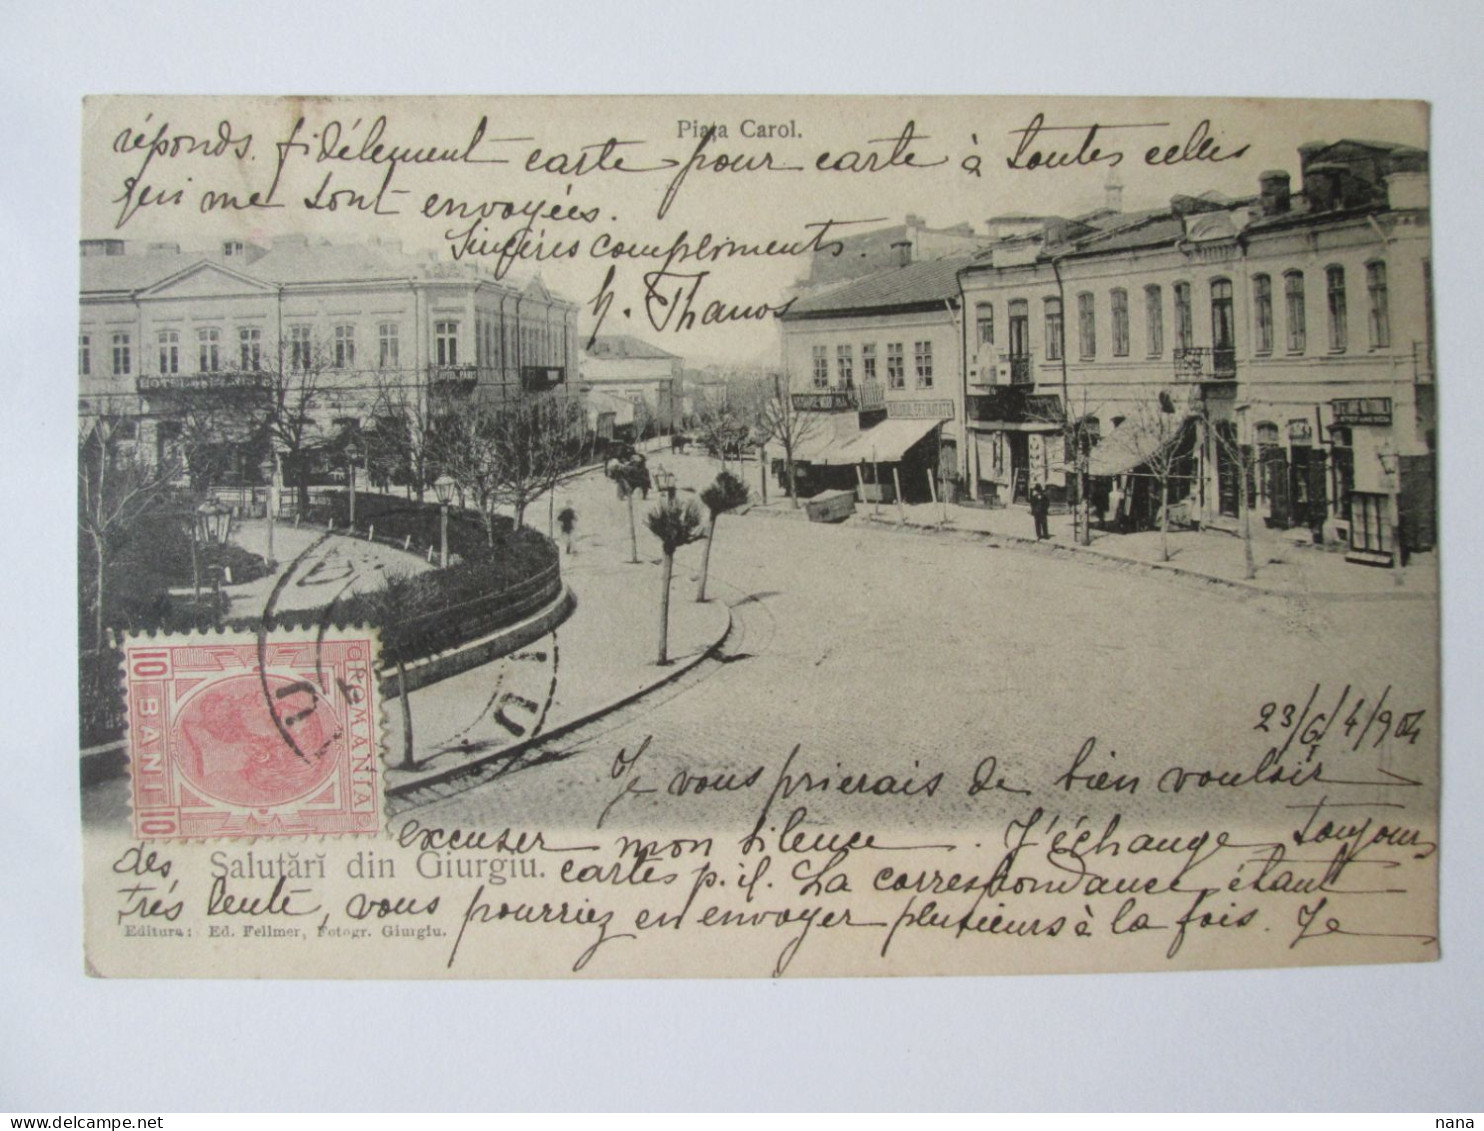 Piața Carol.
réponds fidèlement carte pour carte à toutes celles
qui me sont envoyées.
Sincères compliments.
H. Thanos
ROMANIA
10 BANI 10
23/6/4/904
Je vous prierais de bien vouloir
excuser mon silence. J'échange toujours
des cartes p. il. La correspondance étant
Salutări din Giurgiu.
très lente, vous pourriez en envoyer plusieurs à la fois. Je
Editura: Ed. Fellmer, Fotogr. Giurgiu.
nana